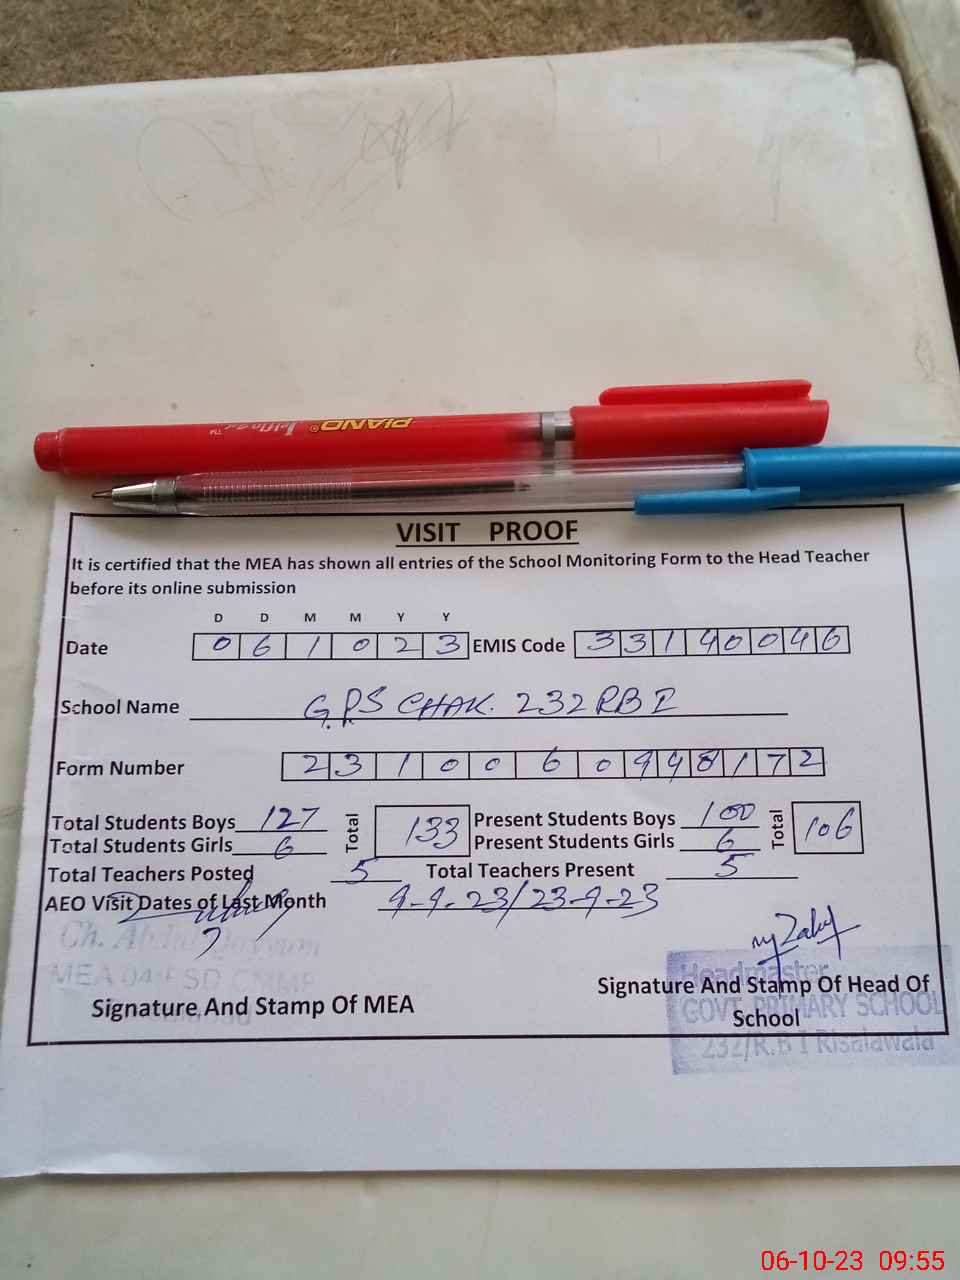 PIANO® Jelflo gel ™
VISIT PROOF
It is certified that the MEA has shown all entries of the School Monitoring Form to the Head Teacher
before its online submission
D D M M Y Y
Date 0 6 1 0 2 3 EMIS Code 3 3 1 4 0 0 4 6
School Name G.P.S CHAK. 232 RB I
Form Number 2 3 1 0 0 6 0 9 9 8 1 7 2
Total Students Boys 127 Total 133 Present Students Boys 100 Total 106
Total Students Girls 6 Present Students Girls 6
Total Teachers Posted 5 Total Teachers Present 5
AEO Visit Dates of Last Month 9-9-23/23-9-23
Ch. Abdul Qayyum
MEA 04 FSD CMMF
Signature And Stamp Of MEA
Signature And Stamp Of Head Of
School
Headmaster
GOVT. PRIMARY SCHOOL
232/R.B I Risalawala
06-10-23 09:55